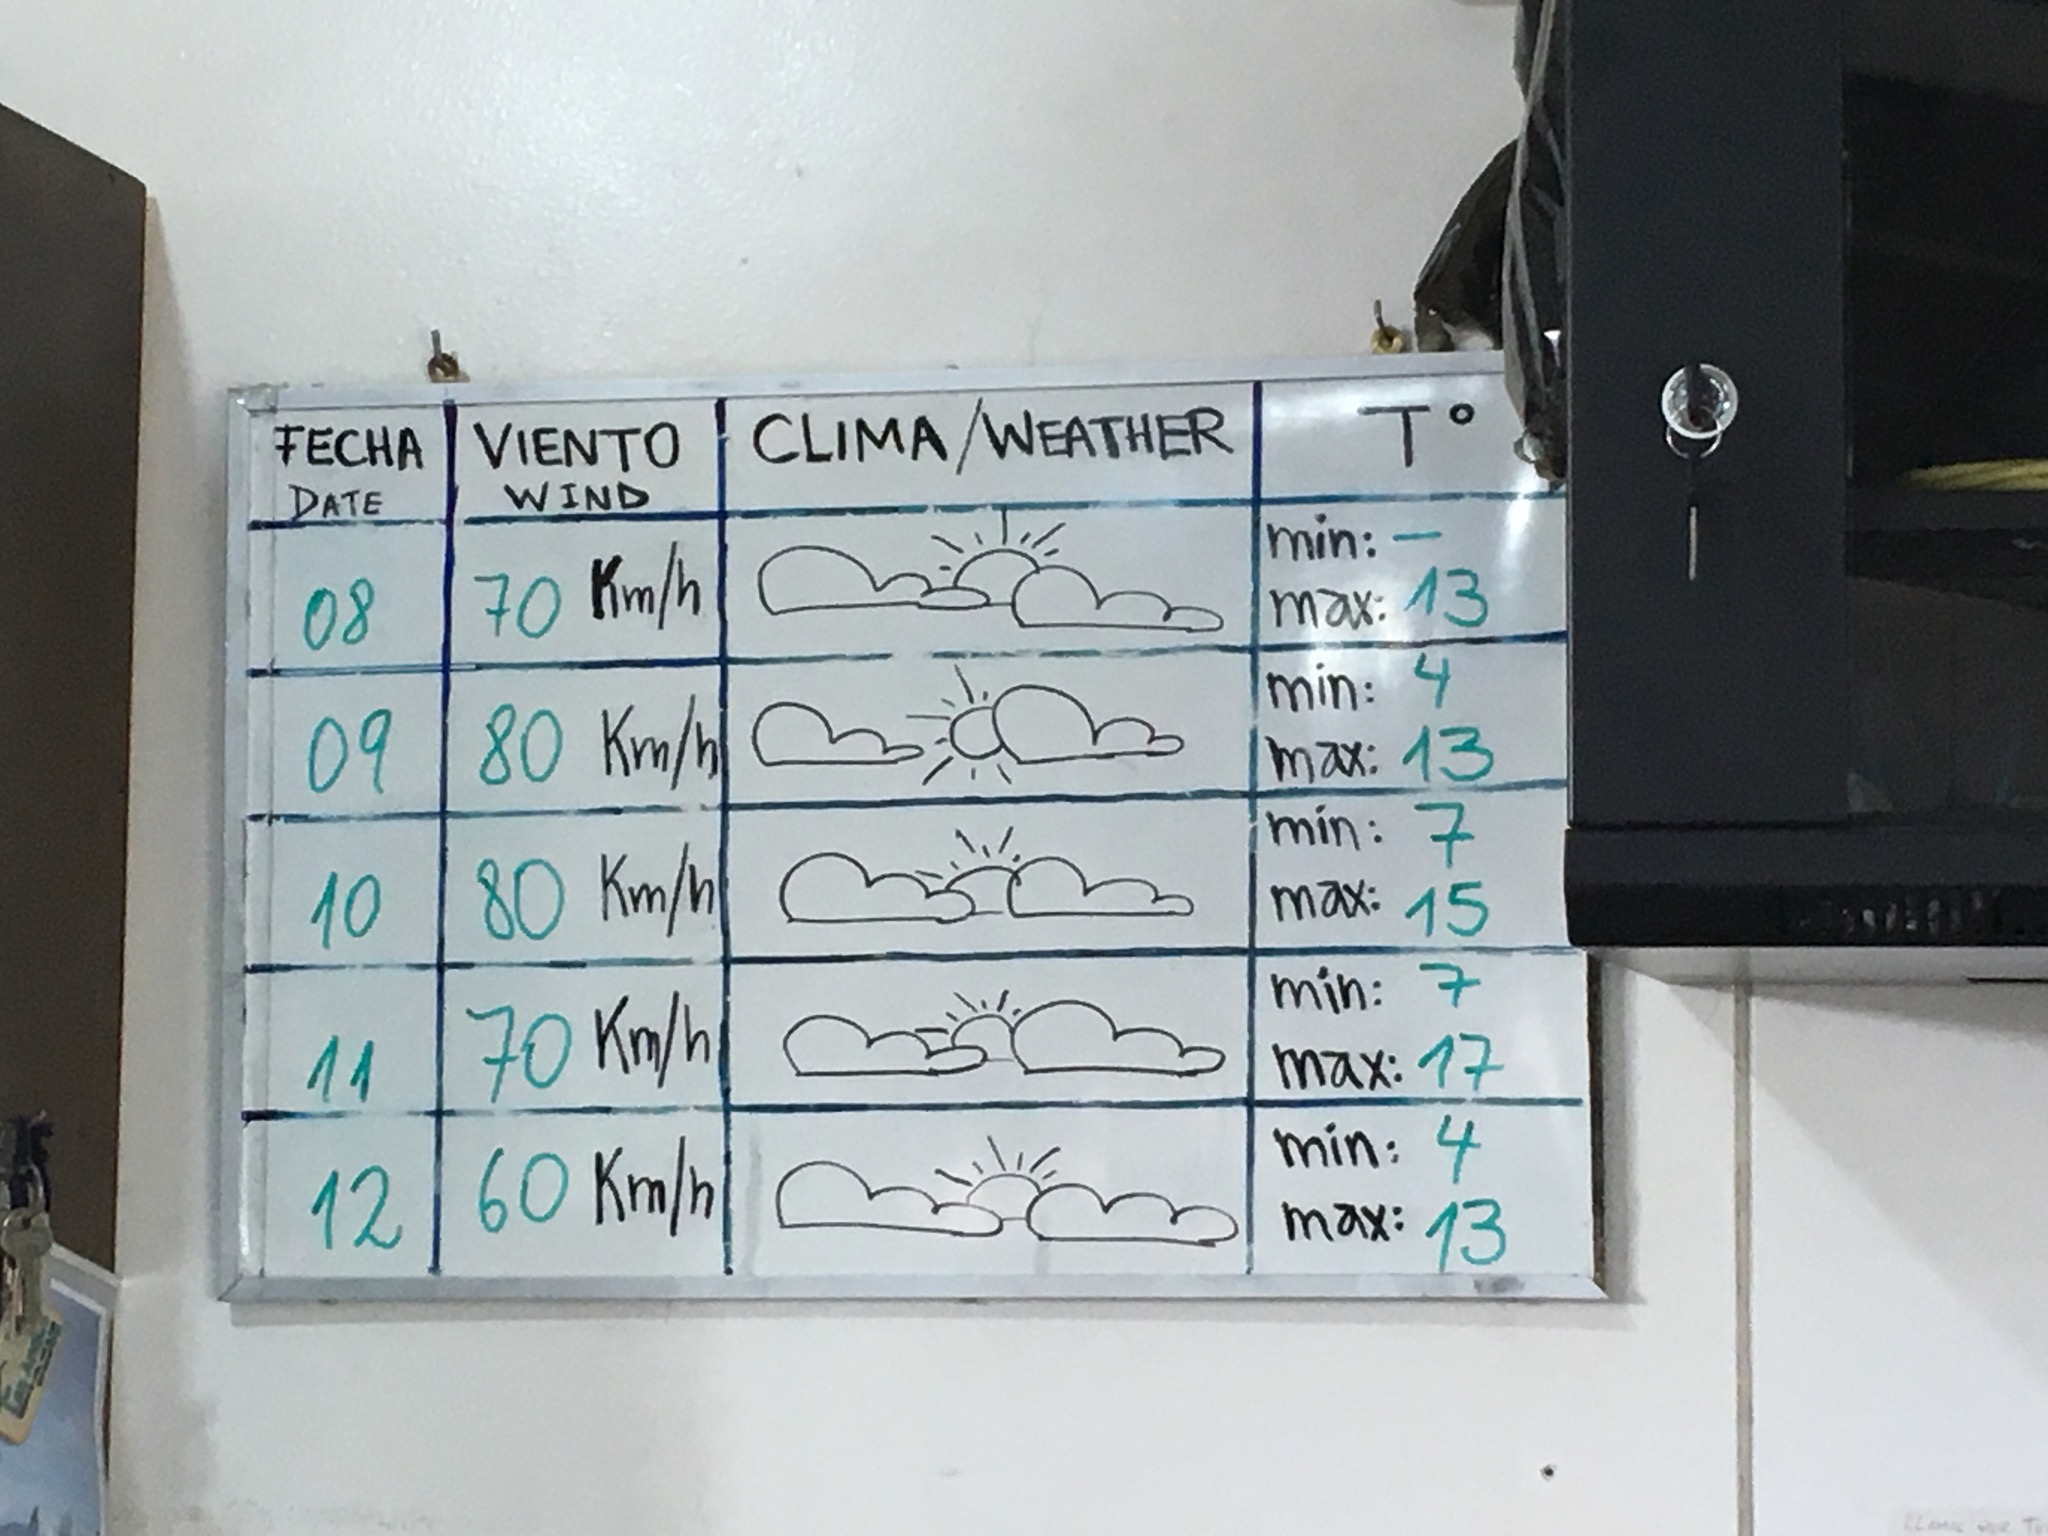 FECHA VIENTO CLIMA/WEATHER T°
DATE WIND
08 70 Km/h min: —
max: 13
09 80 Km/h min: 4
max: 13
10 80 Km/h min: 7
max: 15
11 70 Km/h min: 7
max: 17
12 60 Km/h min: 4
max: 13